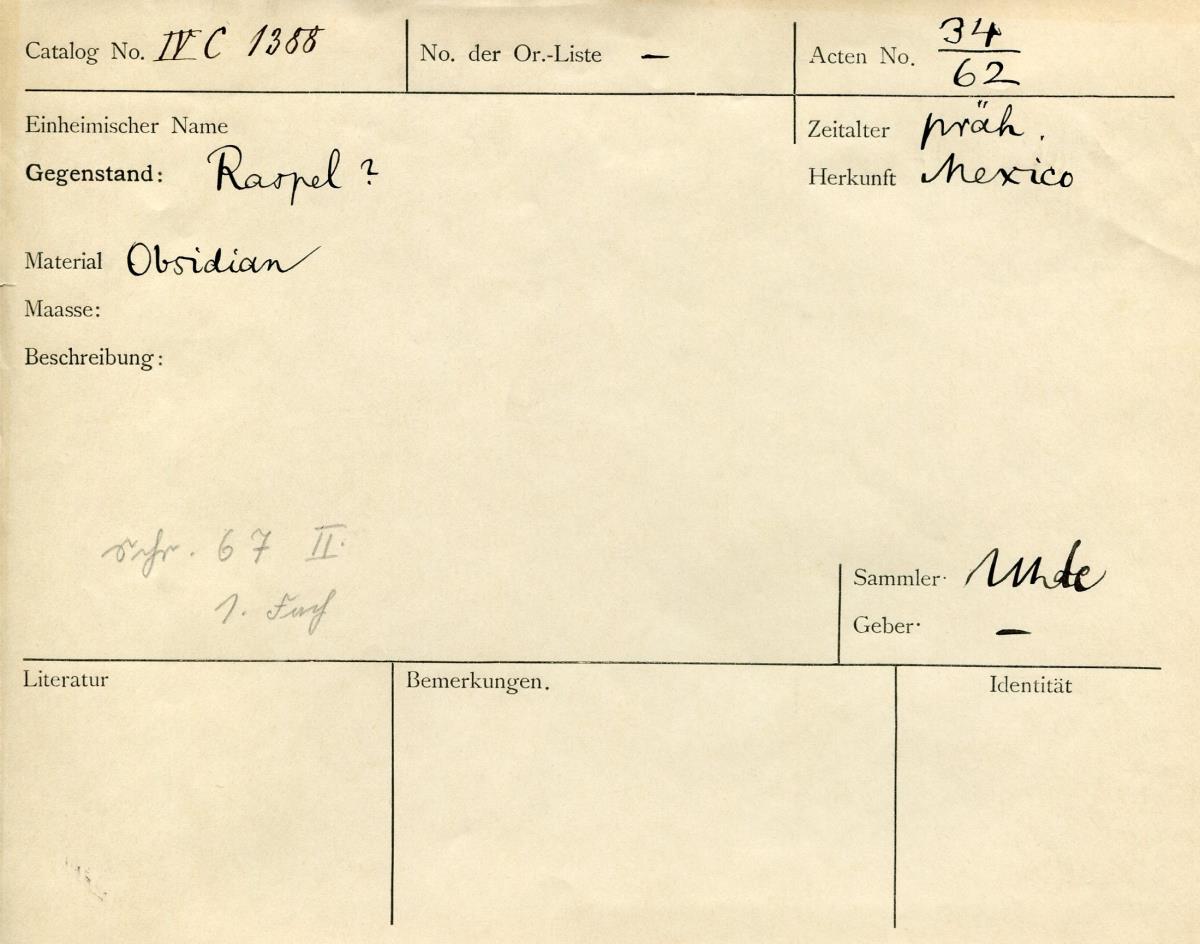 Catalog No. IV C 1388 No. der Or.-Liste — Acten No. 34/62
Einheimischer Name Zeitalter präh.
Gegenstand: Raspel ? Herkunft Mexico
Material Obsidian
Maasse:
Beschreibung:
Schr. 67 II.
1. Fach
Sammler. Uhde
Geber. —
Literatur Bemerkungen. Identität